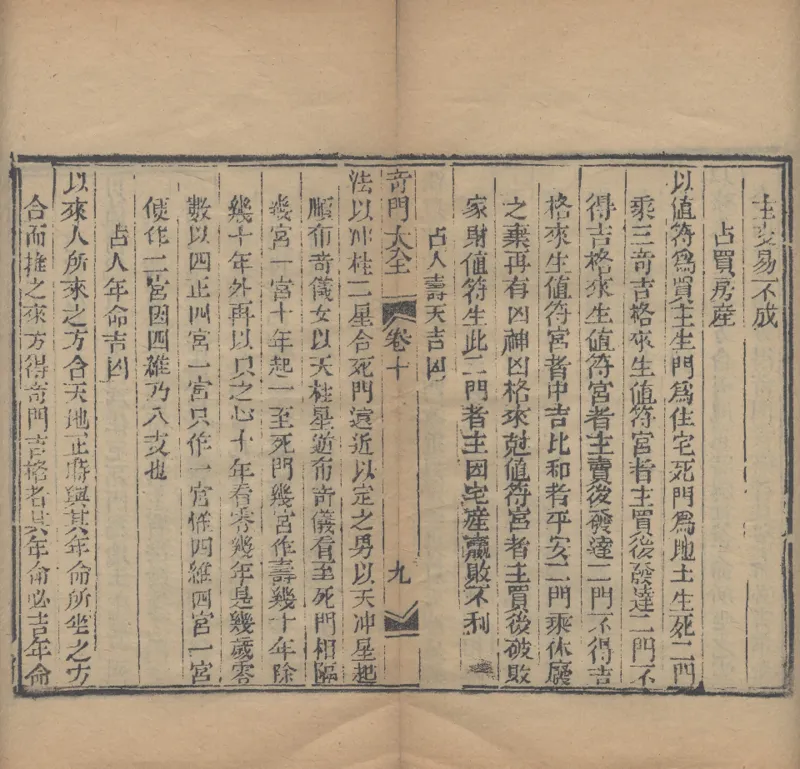 主交易不成
占買房產
以值符爲買主生門爲住宅死門爲地土生死二門
乘三奇吉格來生值符宮者主買後發達二門不
得吉格來生值符宮者主賣後發達二門不得吉
格來生值符宮者中吉比和者平安二門乘休廢
之氣再有凶神凶格來尅值符宮者主買後破敗
家財值符生此二門者主因宅產贏敗不利
占人壽夭吉凶
奇門大全 卷十 九
法以冲柱二星合死門遠近以定之男以天冲星起
順布奇儀女以天柱星逆布奇儀看至死門相臨
幾宮一宮十年起一至死門幾宮作壽幾十年除
幾十年外再以只之心十年看零幾年是幾歲零
數以四正四宮一宮只作一宮惟四維四宮一宮
便作二宮因四維乃八支也
占人年命吉凶
以來人所來之方合天地正時與其年命所坐之方
合而推之來方得奇門吉格者其年命必吉年命